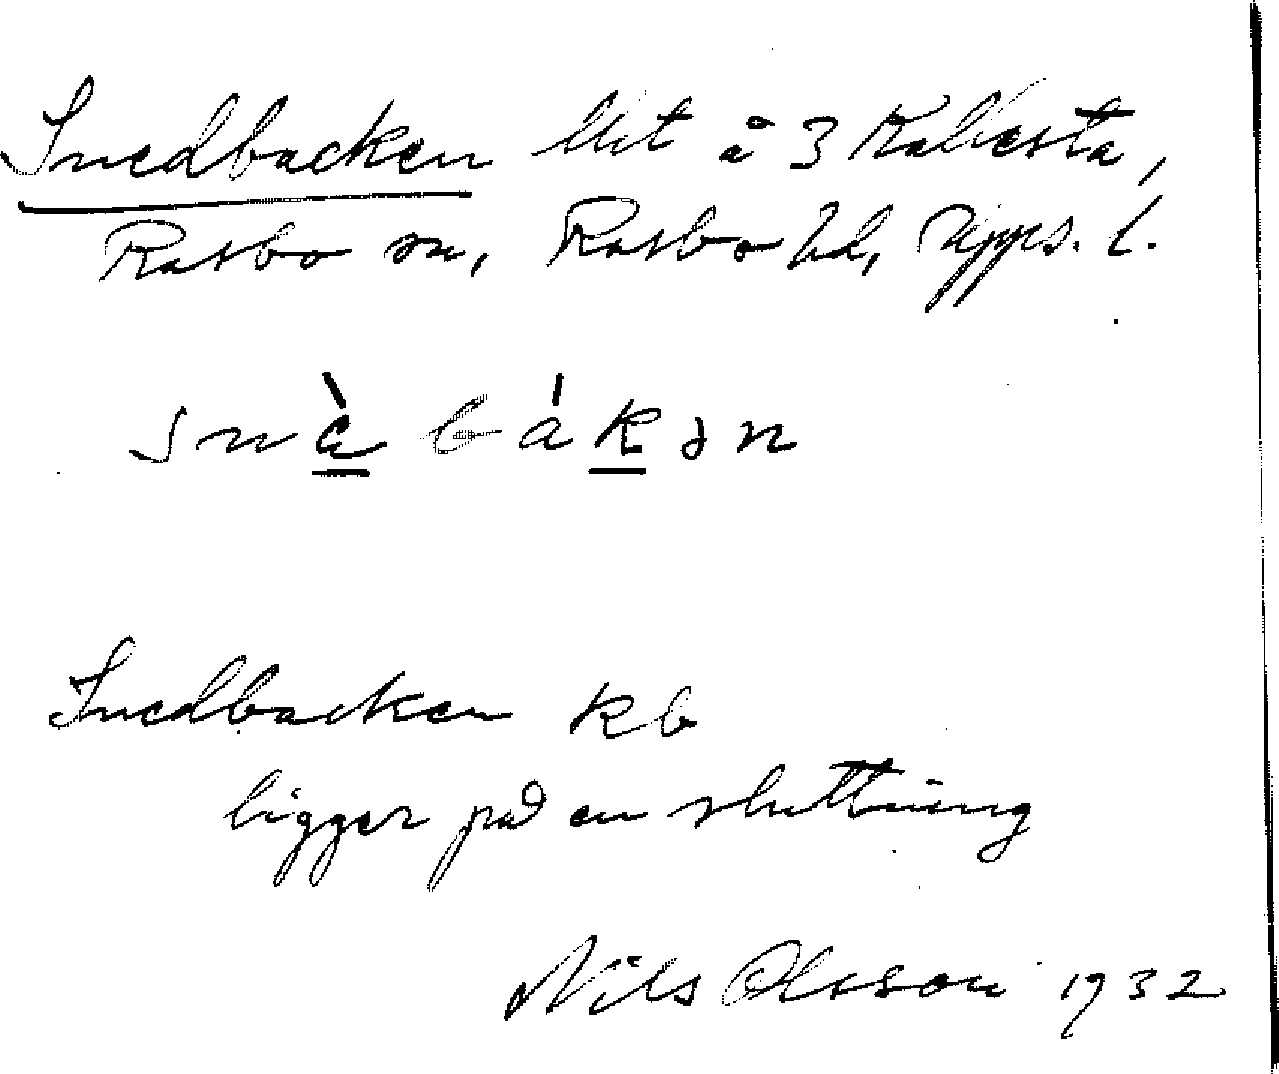 Snedbacken lht å 3 Kallesta,
Rasbo sn, Rasbo hd, Upps. l.
snὰ bákən
Snedbacken kb
ligger på en sluttning
Nils Olsson 1932